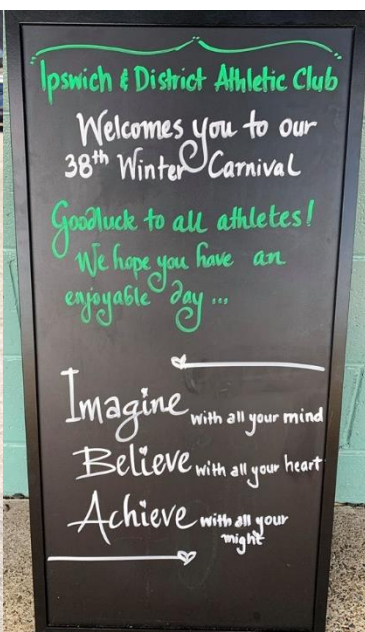 Ipswich & District Athletic Club
Welcomes you to our
38th Winter Carnival
Goodluck to all athletes!
We hope you have an
enjoyable day ...
Imagine with all your mind
Believe with all your heart
Achieve with all your
might